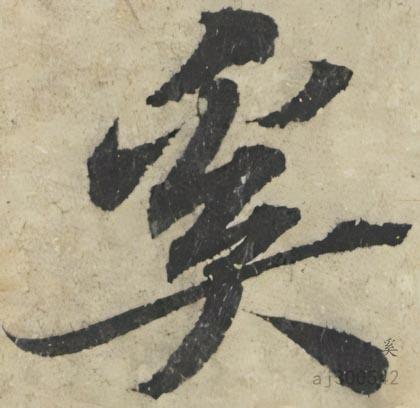 奚
奚
aj300542